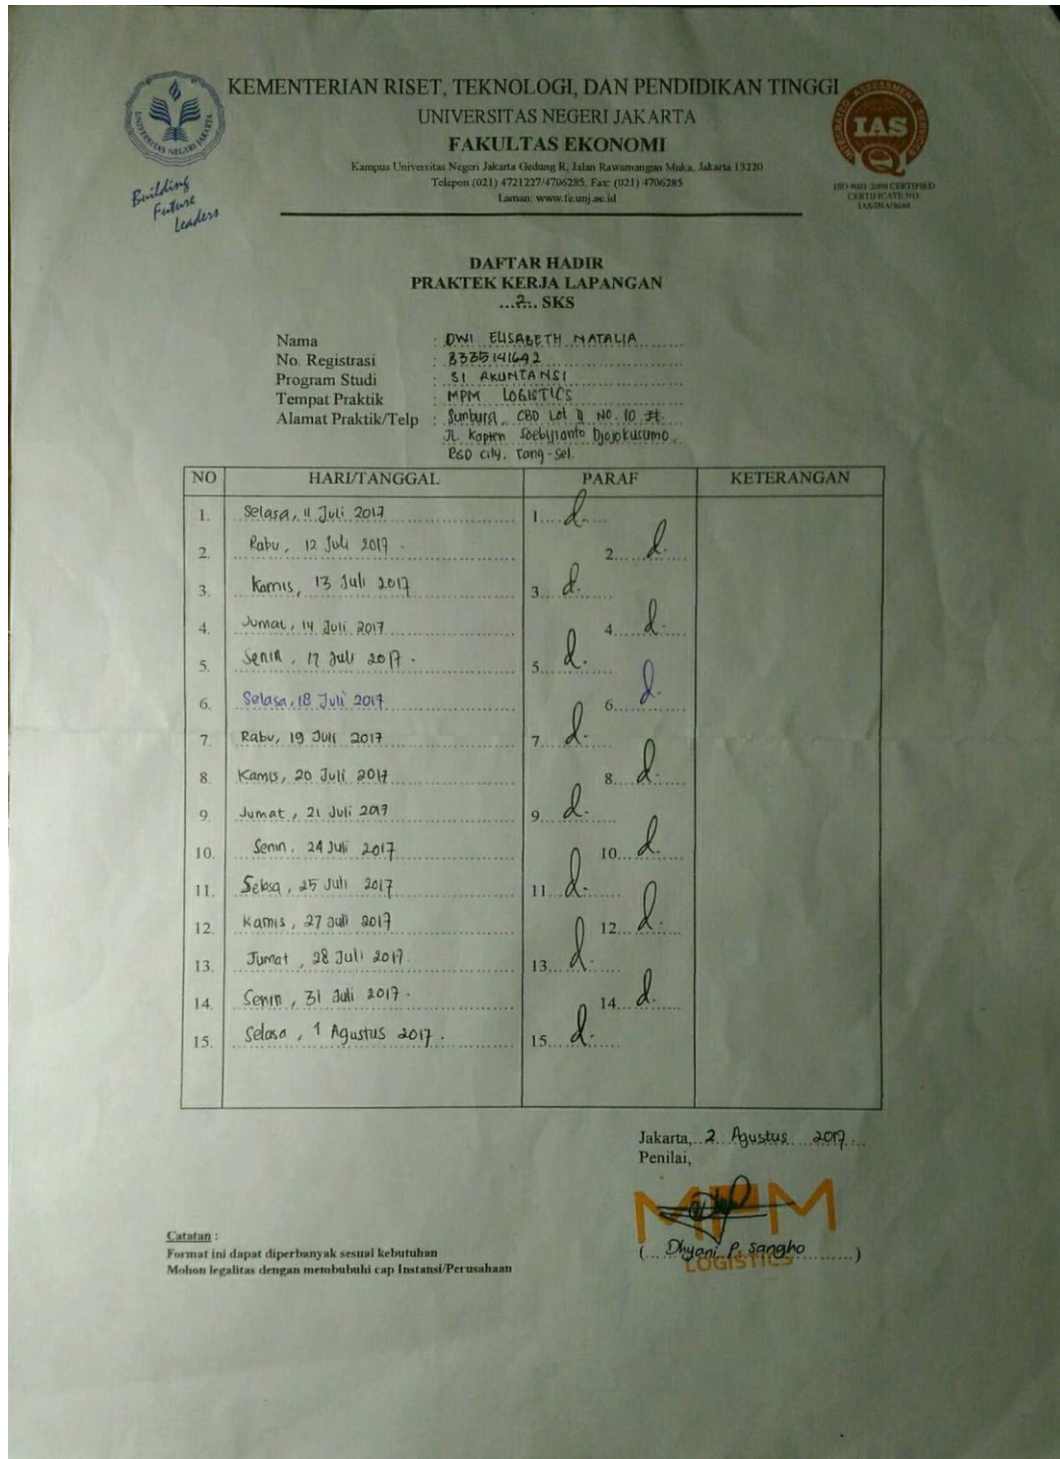 KEMENTERIAN RISET, TEKNOLOGI, DAN PENDIDIKAN TINGGI
UNIVERSITAS NEGERI JAKARTA
FAKULTAS EKONOMI
Kampus Universitas Negeri Jakarta Gedung R, Jalan Rawamangun Muka, Jakarta 13220
Telepon (021) 4721227/4706285, Fax: (021) 4706285
Laman: www.fe.unj.ac.id
UNIVERSITAS NEGERI JAKARTA
Building
Future
Leaders
INTEGRATED ASSESSMENT SERVICES
IAS
ISO 9001:2008 CERTIFIED
CERTIFICATE NO
DAFTAR HADIR
PRAKTEK KERJA LAPANGAN
...2... SKS
Nama : DWI ELISABETH NATALIA
No. Registrasi : 8335141642
Program Studi : S1 AKUNTANSI
Tempat Praktik : MPM LOGISTICS
Alamat Praktik/Telp : Sunburst CBD Lot II NO. 10
JL. Kapten Soebijanto Djojokusumo,
BSD City, Tang-Sel.
NO HARI/TANGGAL PARAF KETERANGAN
1. Selasa, 11 Juli 2017 1.
2. Rabu, 12 Juli 2017. 2.
3. Kamis, 13 Juli 2017 3.
4. Jumat, 14 Juli 2017 4.
5. Senin, 17 Juli 2017. 5.
6. Selasa, 18 Juli 2017 6.
7. Rabu, 19 Juli 2017 7.
8. Kamis, 20 Juli 2017 8.
9. Jumat, 21 Juli 2017 9.
10. Senin, 24 Juli 2017 10.
11. Selasa, 25 Juli 2017 11.
12. Kamis, 27 Juli 2017 12.
13. Jumat, 28 Juli 2017. 13.
14. Senin, 31 Juli 2017. 14.
15. Selasa, 1 Agustus 2017. 15.
Jakarta, 2 Agustus 2017
Penilai,
MPM
(... Dhyani P. Sangho ...)
LOGISTICS
Catatan :
Format ini dapat diperbanyak sesuai kebutuhan
Mohon legalitas dengan membubuhi cap Instansi/Perusahaan